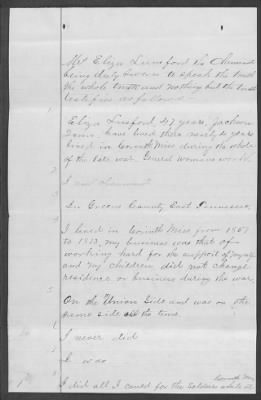 Mrs Eliza Lunsford the Claimant
being duly sworn to speak the truth
the whole truth and nothing but the truth
testifies as follows
Eliza Lunsford 47 years, Jackson
Tenn, have lived there nearly 2 years
lived in Corinth Miss during the whole
of the late war. General womans work.
I am claimant
In Cocke County East Tennessee.
I lived in Corinth Miss from 1857
to 1873, my business was that of
working hard for the support of myself
and my children did not change
residence or business during the war
On the Union side and was on the
same side all the time
I never did
I was
Corinth Miss
I did all I could for the Soldiers while at